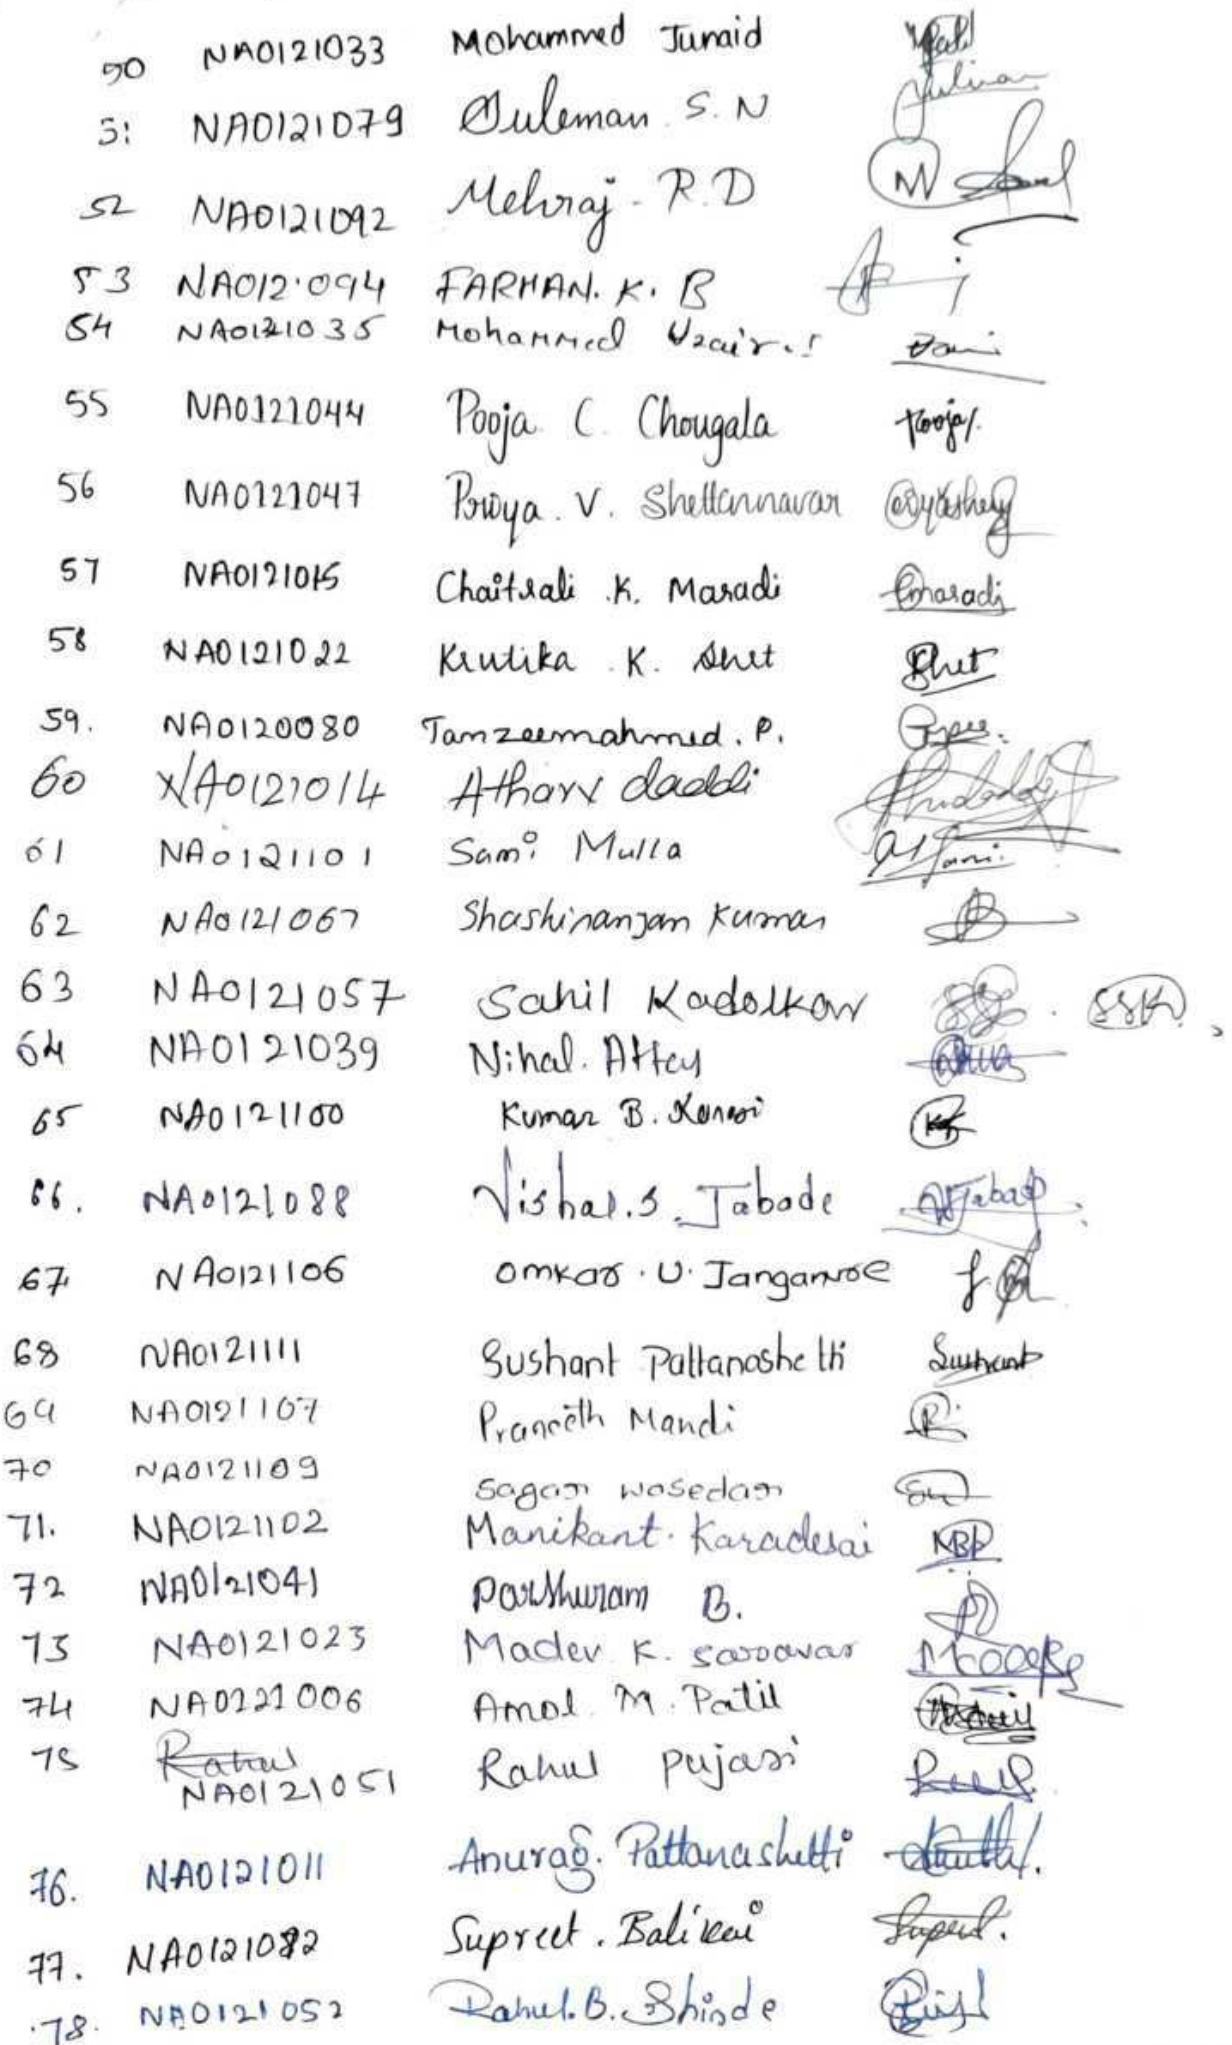 50 NA0121033 Mohammed Junaid
51 NA0121079 Suleman S.N
52 NA0121092 Mehraj - R.D
53 NA012.094 FARHAN. K. B
54 NA0121035 Mohammed Uzair.
55 NA0121044 Pooja C. Chougala Pooja
56 NA0121047 Priya. V. Shettannavar
57 NA0121015 Chaitrali .K. Maradi Cmaradi
58 NA0121022 Krutika .K. Shet Shet
59. NA0120080 Tanzeemahmed. P.
60 NA0121014 Atharv daddi
61 NA0121101 Sami Mulla
62 NA0121067 Shashiranjan Kumar
63 NA0121057 Sahil Kadolkar SSK
64 NA0121039 Nihal. Attey
65 NA0121100 Kumar B.
66. NA0121088 Vishal.S. Jabade Jabade
67. NA0121106 Omkar . U.
68 NA0121111 Sushant Pattanashetti Sushant
69 NA0121107 Praneeth Mandi
70 NA0121109 Sagar wasedar
71. NA0121102 Manikant. Karadesai
72 NA0121041 Parshuram B.
73 NA0121023 Madev K. saravar
74 NA0121006 Amol. M. Patil
75 Rahul
NA0121051 Rahul Pujari
76. NA0121011 Anurag. Pattanashetti
77. NA0121082 Supreet . Balikai Supreet.
78. NA0121052 Rahul.B. Shinde